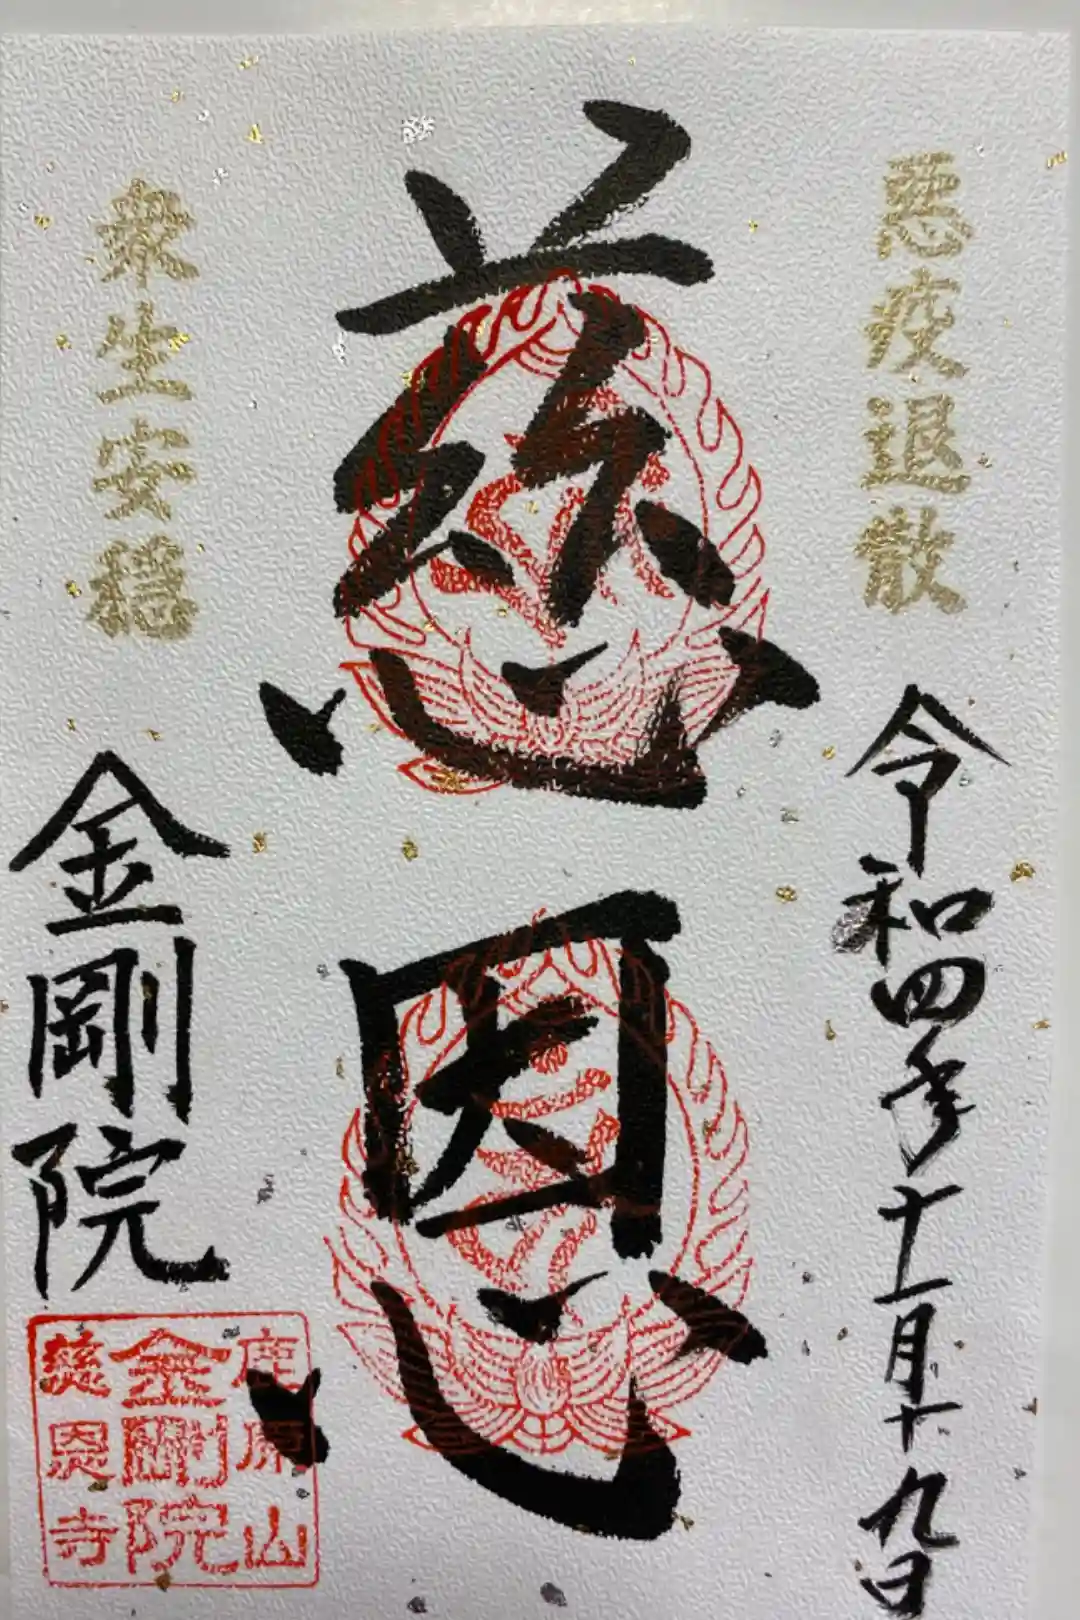 悪疫退散
令和四年十一月十九日
慈恩
衆生安穏
金剛院
鹿原山
金剛院
慈恩寺